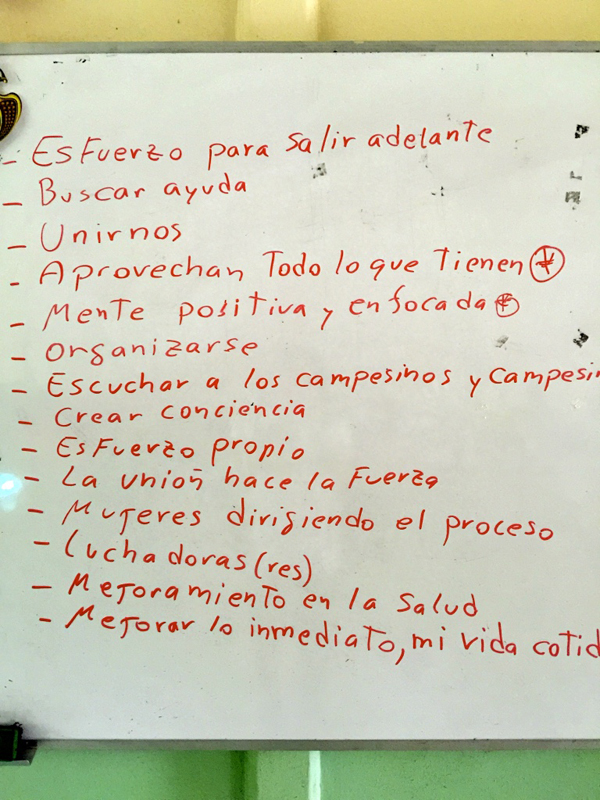 - Esfuerzo para salir adelante
- Buscar ayuda
- Unirnos
- Aprovechan Todo lo que tienen *
- Mente positiva y enfocada *
- organizarse
- Escuchar a los campesinos y campesin
- Crear conciencia
- Esfuerzo propio
- La unión hace la Fuerza
- Mujeres dirigiendo el proceso
- Luchadoras (res)
- Mejoramiento en la Salud
- Mejorar lo inmediato, mi vida cotid